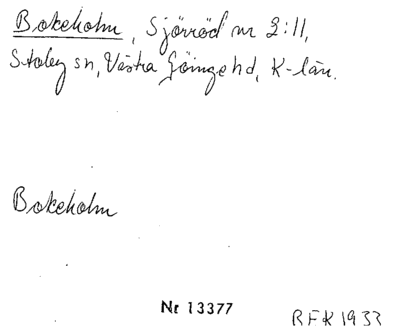 Bokeholm, Sjörröd nr 2:11,
Stoby sn, Västra Göinge hd, K-län.
Bokeholm
Nr 13377
RFK 1933